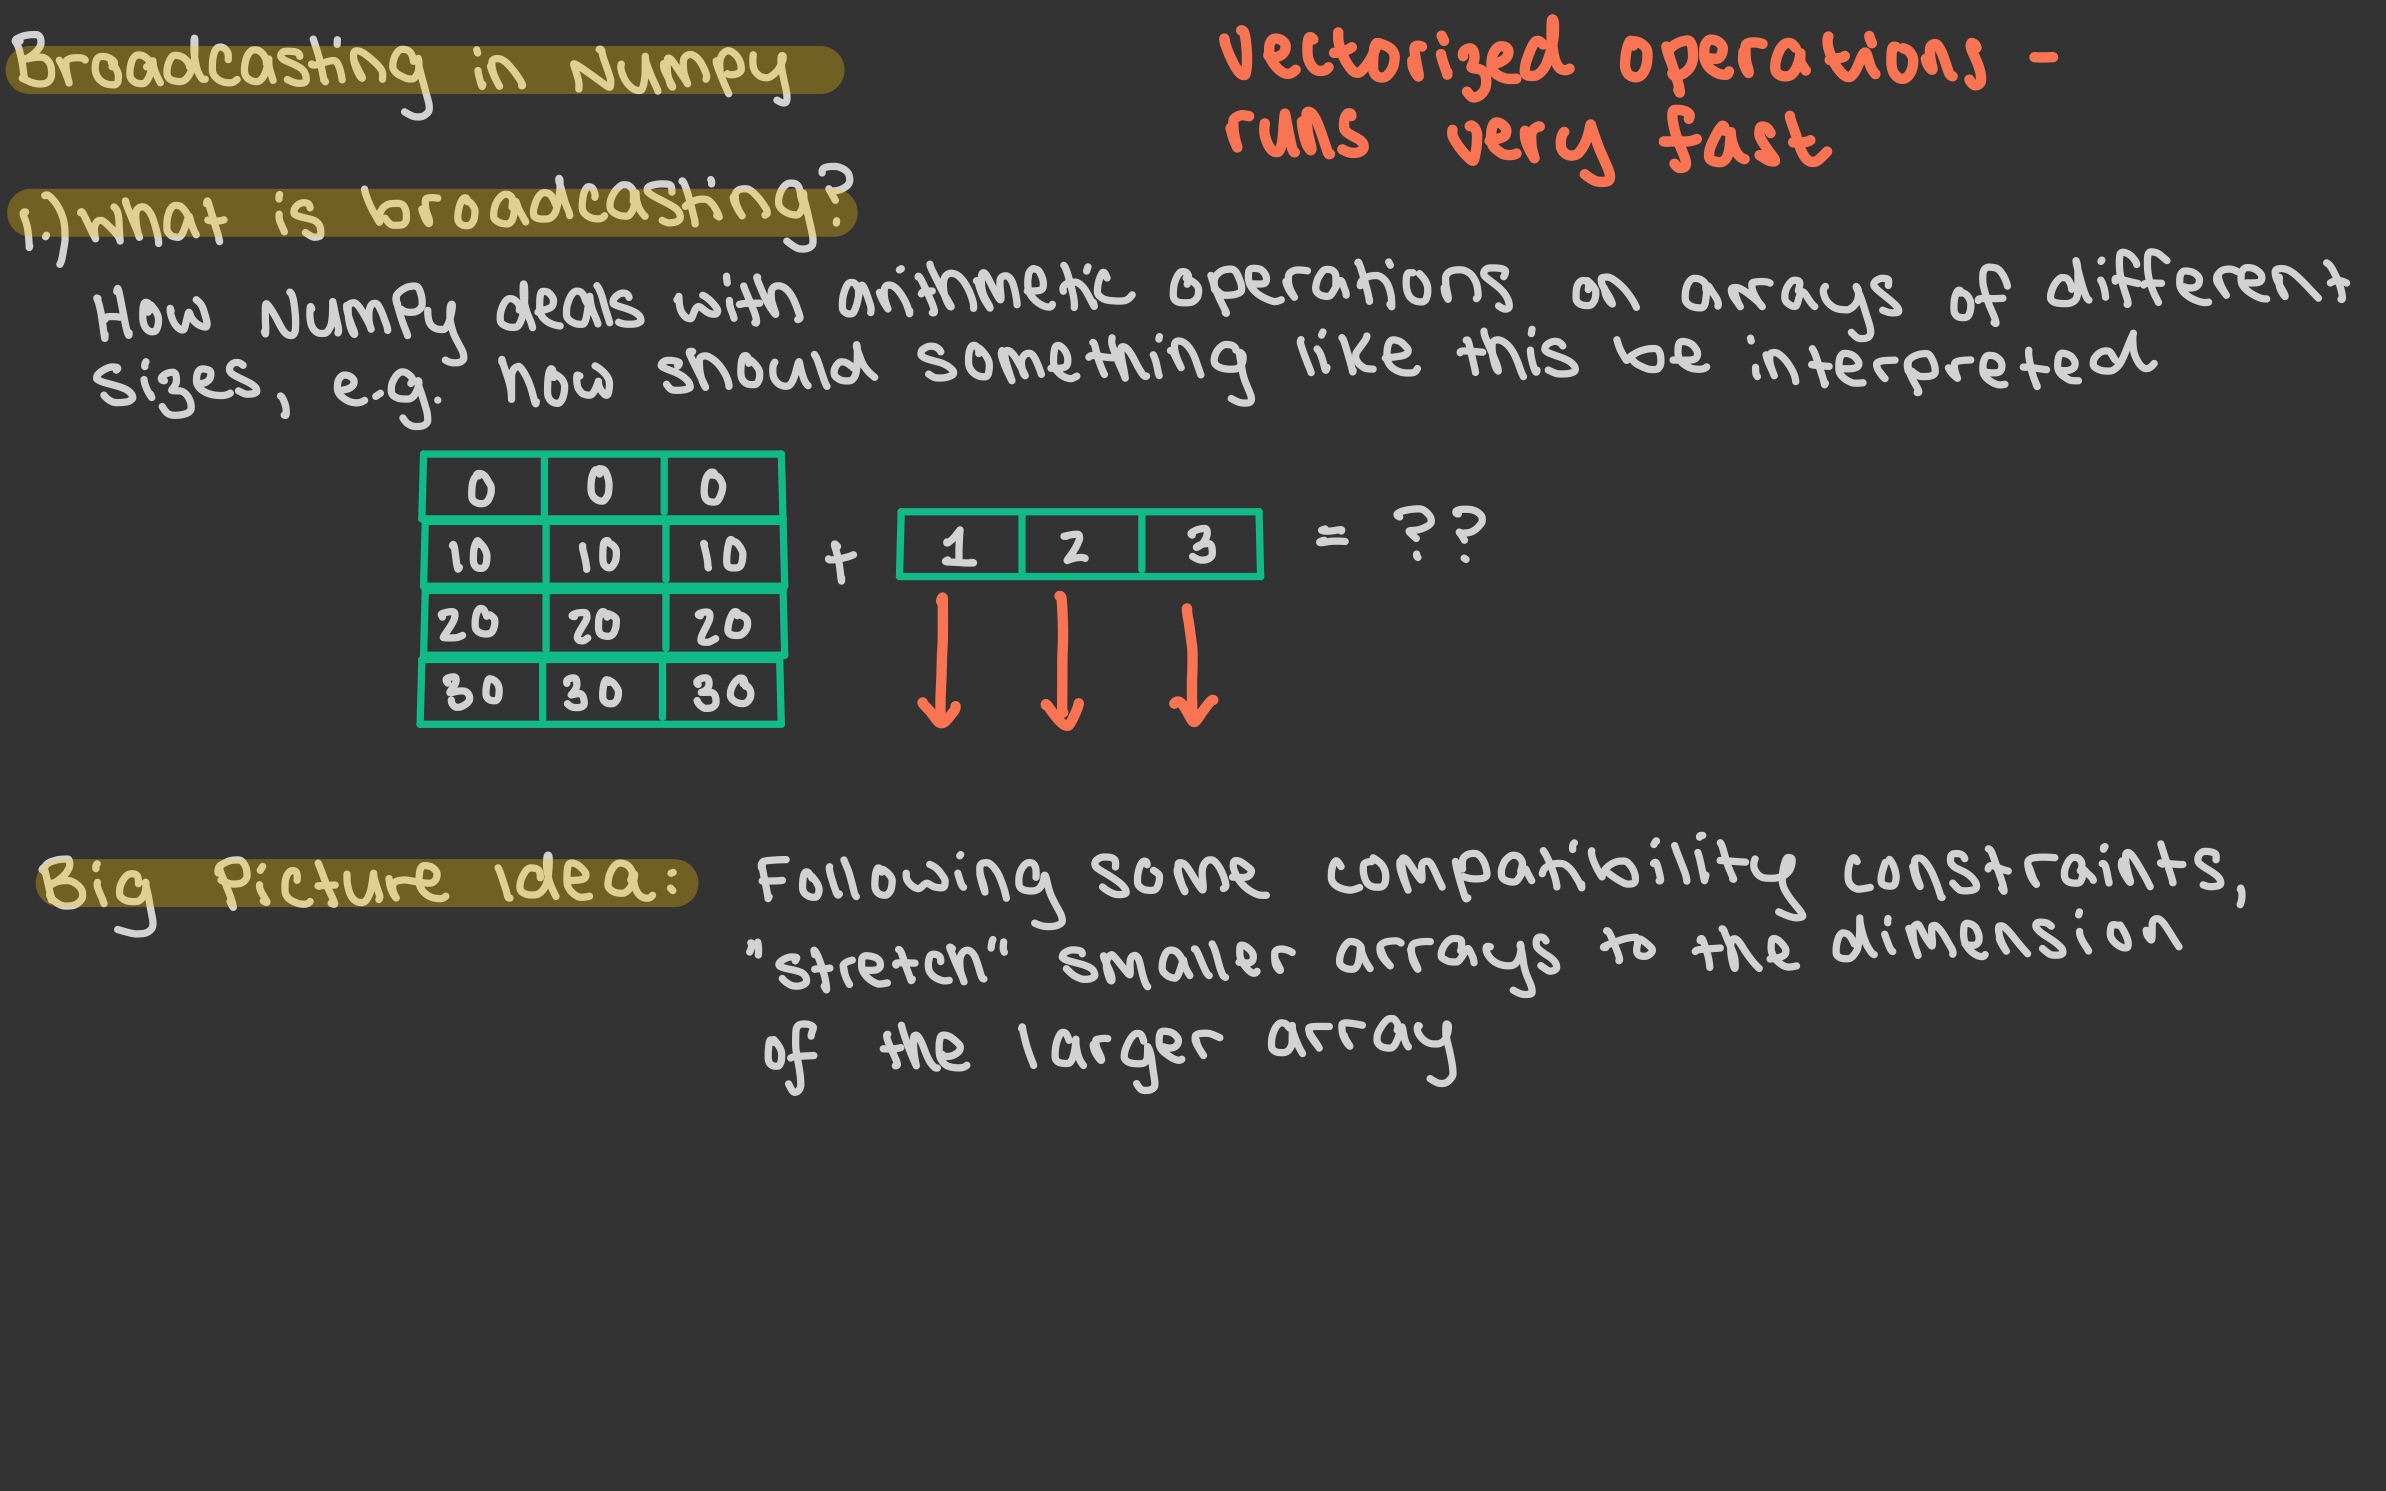 Broadcasting in NumPy
Vectorized operations -
runs very fast
1.) What is broadcasting?
How NumPy deals with arithmetic operations on arrays of different
sizes, e.g. how should something like this be interpreted
0 0 0
10 10 10
20 20 20
30 30 30
+ 1 2 3 = ??
Big Picture Idea: Following some compatibility constraints,
"stretch" smaller arrays to the dimension
of the larger array